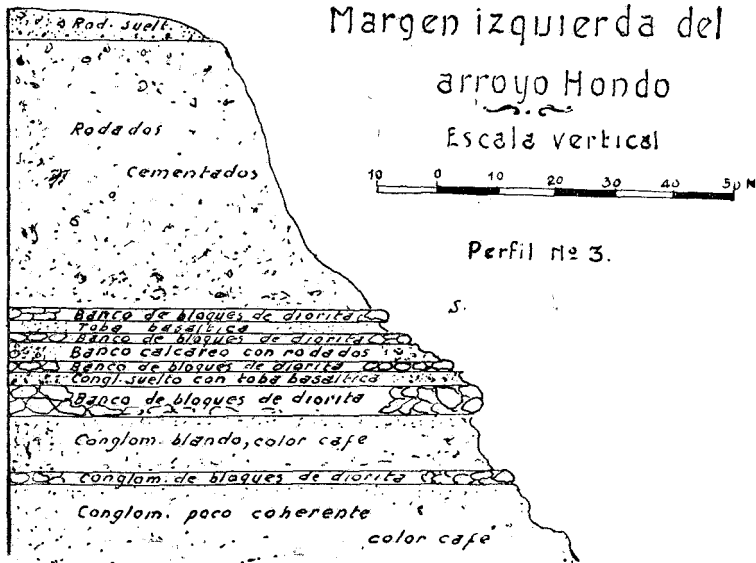 Margen izquierda del
arroyo Hondo
Escala vertical
10 0 10 20 30 40 50 M
Perfil Nº 3.
S.
Rod. suelt.
Rodados
cementados
Banco de bloques de diorita
Toba basaltica
Banco de bloques de diorita
Banco calcareo con rodados
Banco de bloques de diorita
Congl. suelto con toba basaltica
Banco de bloques de diorita
Conglom. blando, color cafe
Conglom. de bloques de diorita
Conglom. poco coherente
color cafe